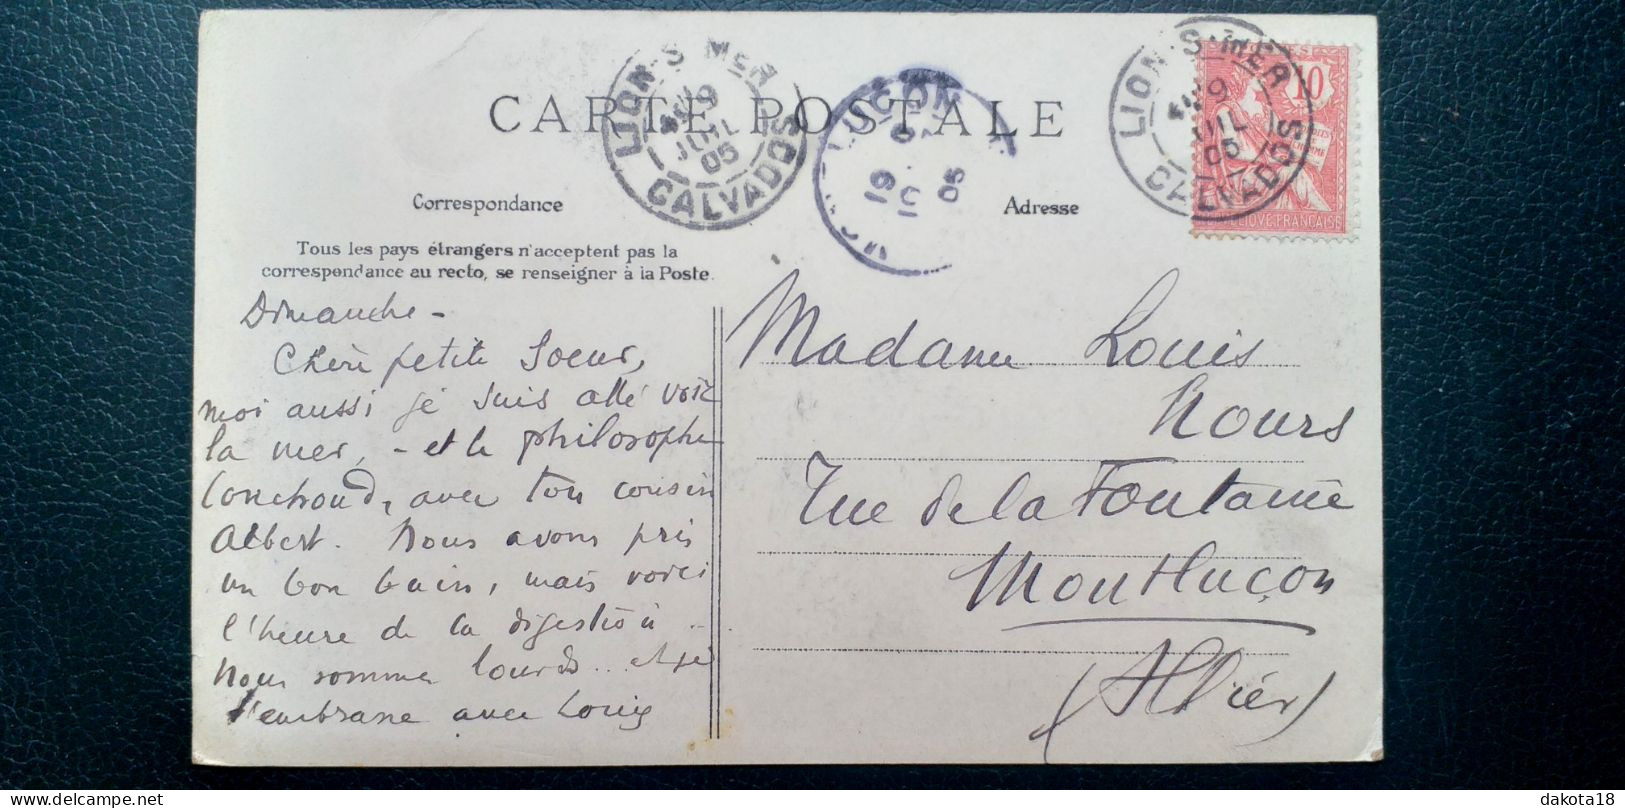 CARTE POSTALE
LION-S-MER
9
JUIL
05
CALVADOS
LION-S-MER
9
JUIL
05
CALVADOS
10
19
05
Correspondance
Adresse
Tous les pays étrangers n'acceptent pas la
correspondance au recto, se renseigner à la Poste.
Dimanche -
Chère petite Soeur,
moi aussi je suis allé voir
la mer, - et le philosophe
Conchoud, avec ton cousin
Albert. Nous avons pris
un bon bain, mais voici
l'heure de la digestion ..
Nous sommes lourds.. et je
t'embrasse avec Louis
Madame Louis
Nours
Rue de la Fontaine
Montluçon
(Allier)
dakota18